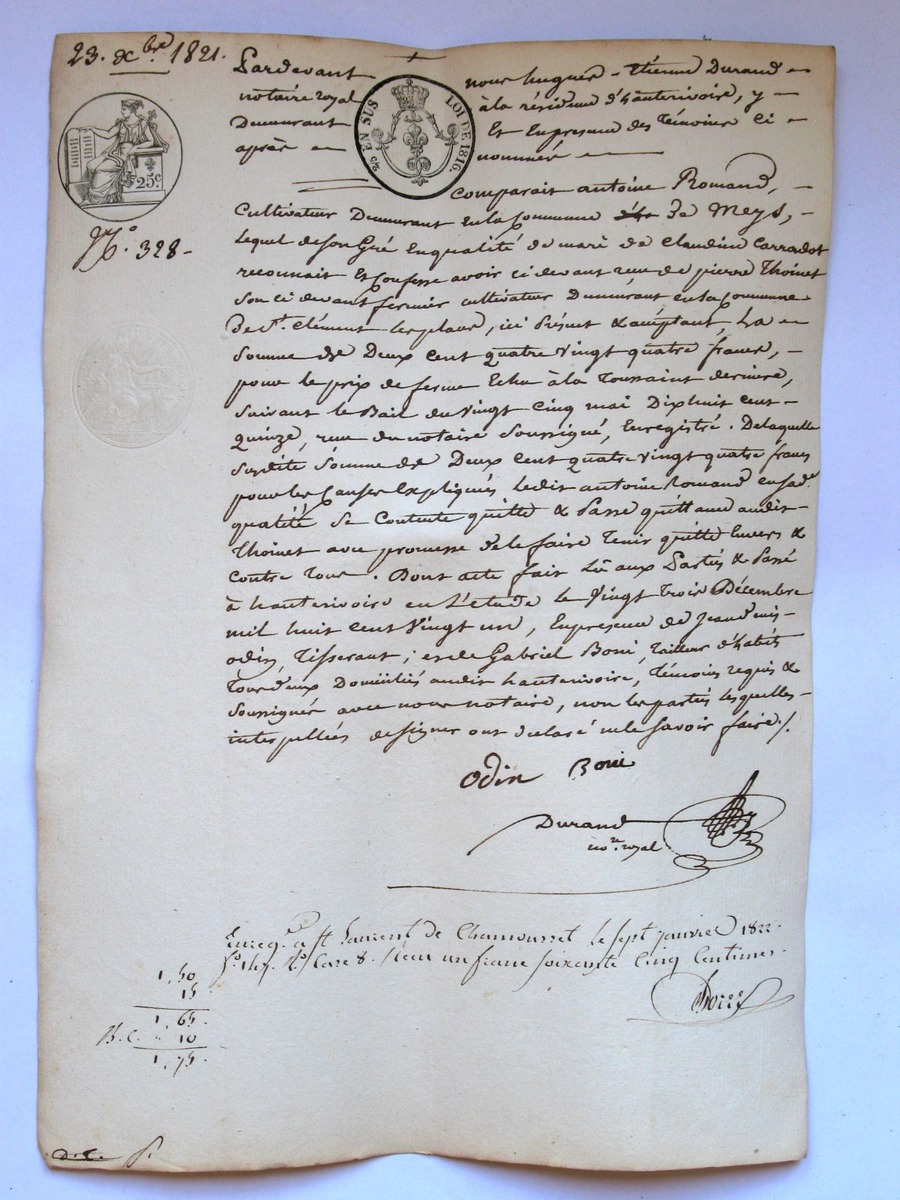 23. xbre 1821.
Pardevant nous hugues-Etienne Durand
notaire royal à la résidence d'hauterivoire, y
Demeurant Et En presence des Témoins Ci
après nommés
EN SUS LOI DE 1816.
25c
N.° 328
Comparait antoine Romand,
Cultivateur Demeurant En la Commune de Meys,
lequel de son Gré En qualité de mari de Claudine Carradot
reconnait Et Confesse avoir ci devant reçu de pierre Thoinet
son ci devant fermier cultivateur Demeurant en la Commune
de St. Clément les places, ici Présent & acceptant, La
Somme de Deux cent quatre vingt quatre francs,
pour le prix de ferme Echu à la Toussaint derniere,
suivant le Bail du vingt Cinq mai Dix huit cent
quinze, reçu du notaire soussigné, Enregistré. De laquelle
susdite Somme de Deux cent quatre vingt quatre francs
pour les Causes Expliquées ledit antoine Romand en sad.e
qualité se Contente quitte & Passe quittance audit
Thoinet avec promesse de le faire Tenir quitte Envers &
Contre Tous. Dont acte fait Lû aux Parties & Passé
à hauterivoire en L'etude le Vingt Trois Décembre
mil huit cent Vingt un, En presence de Jean denis
odin, Tisserant; et de Gabriel Boni, Tailleur d'habits
Tous deux Domiciliés audit hauterivoire, Témoins requis &
Soussignés avec nous notaire, non les parties lesquelles
interpellées de signer ont déclaré ne le savoir faire./.
Odin Boni
Durand
no.re royal
Enreg.é a St Laurent de Chamousset le sept janvier 1822
f.° 147 v.° Case 8. Reçu un franc soixante cinq Centimes
1,50
15
1,65.
10
1,75.